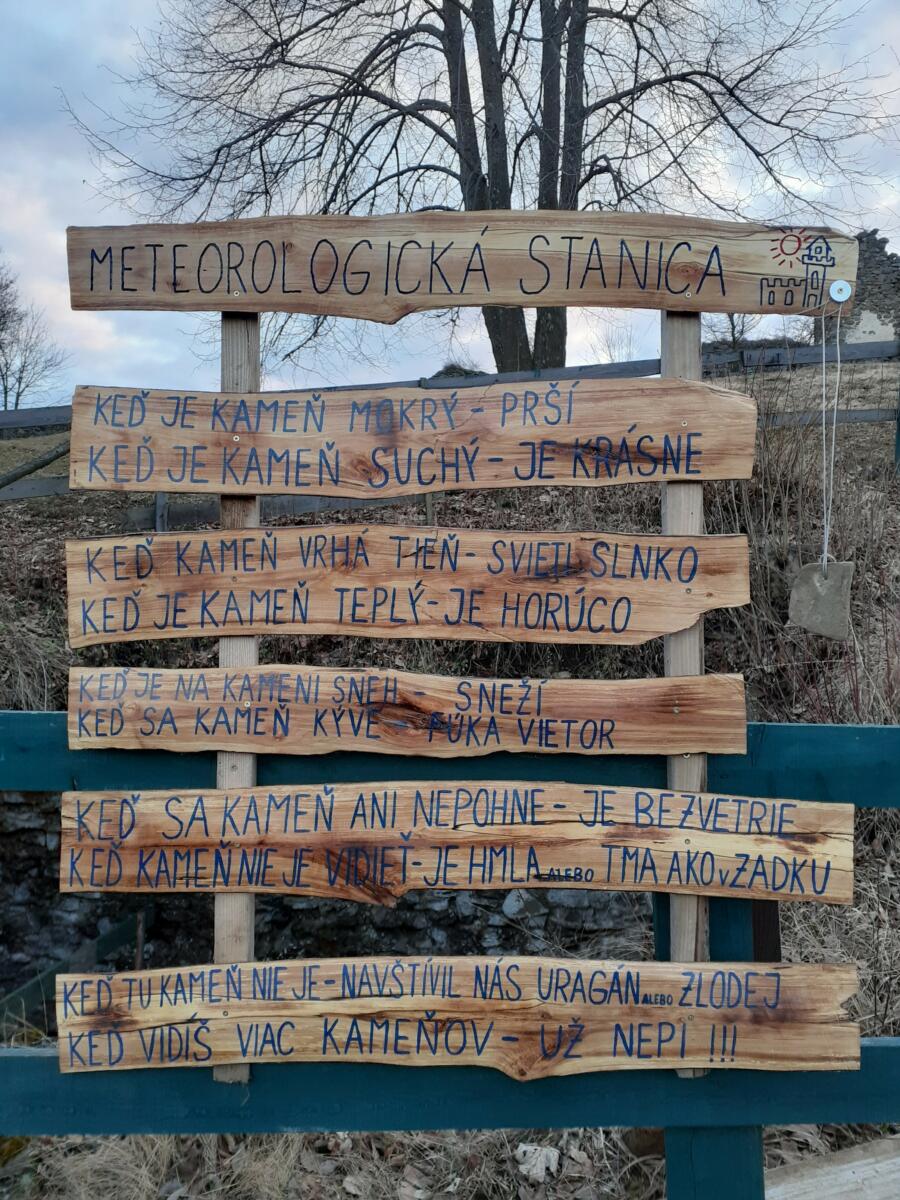 METEOROLOGICKÁ STANICA
KEĎ JE KAMEŇ MOKRÝ - PRŠÍ
KEĎ JE KAMEŇ SUCHÝ - JE KRÁSNE
KEĎ KAMEŇ VRHÁ TIEŇ - SVIETI SLNKO
KEĎ JE KAMEŇ TEPLÝ - JE HORÚCO
KEĎ JE NA KAMENI SNEH - SNEŽÍ
KEĎ SA KAMEŇ KÝVE - FÚKA VIETOR
KEĎ SA KAMEŇ ANI NEPOHNE - JE BEZVETRIE
KEĎ KAMEŇ NIE JE VIDIEŤ - JE HMLA ALEBO TMA AKO V ZADKU
KEĎ TU KAMEŇ NIE JE - NAVŠTÍVIL NÁS URAGÁN ALEBO ZLODEJ
KEĎ VIDÍŠ VIAC KAMEŇOV - UŽ NEPI !!!